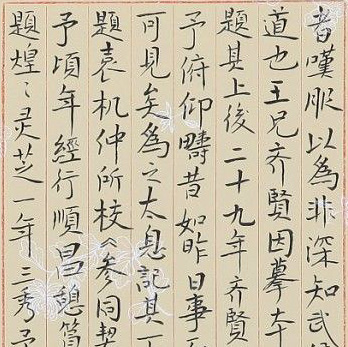 者嘆服以為非深知武
道也王兄齐賢因摹夲
題其上後二十九年齐賢
予俯仰疇昔如昨日事
可見矣為之太息記其
題袁机仲所校《参同契
予頃年經行順昌憩
題煌〻灵芝一年三秀予